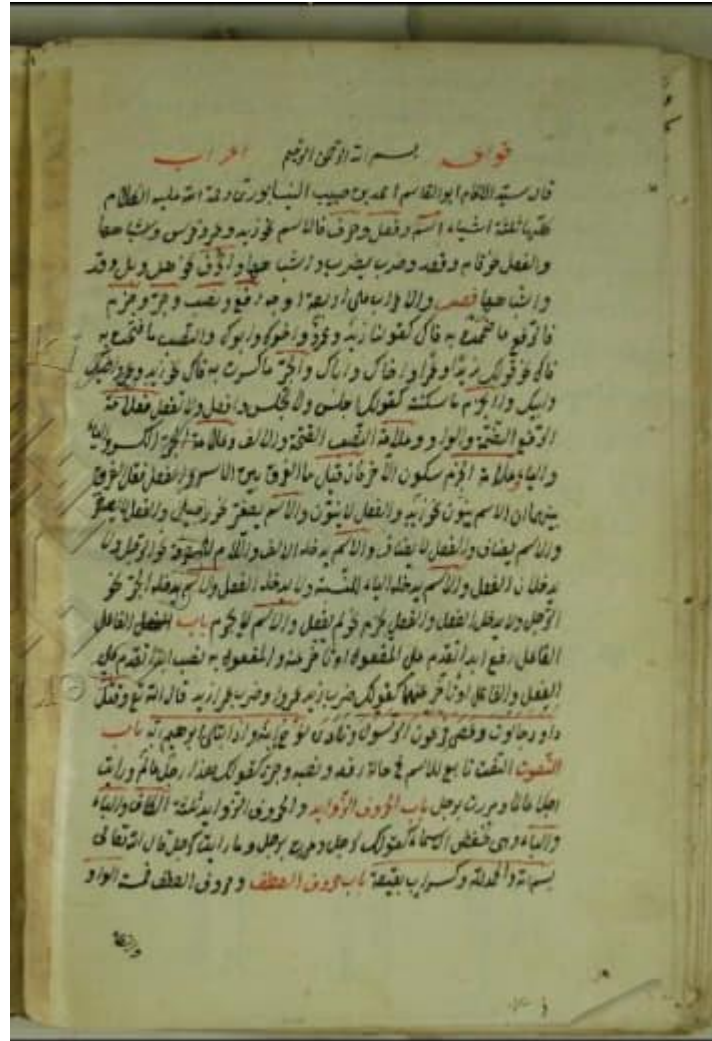 بسم الله الرحمن الرحيم اعراب
قال سيد الامام ابو القاسم احمد بن حبيب النيسابوري رحمة الله عليه الكلام
كلها ثلثة اشياء اسم وفعل وحرف فالاسم نحو زيد وعمرو وفرس وشباهها
والفعل نحو قام وقعد وضرب يضرب واشباهها والحرف نحو هل وبل وقد
واشباهها فصل والاعراب على اربعة اوجه رفع ونصب وجر وجزم
فالرفع ما ضممت به فاك كقولنا زيد وعمرو واخوك وابوك والنصب ما فتحت به
فاك نحو قولك زيدا وعمرا واخاك واباك والجر ما كسرت به فاك نحو زيد وعمرو واخيك
وابيك والجزم ما سكنته كقولك اجلس ولا تجلس وافعل ولا تفعل فعلامة
الرفع الضمة والواو وعلامة النصب الفتحة والالف وعلامة الجر الكسرة والياء
وعلامة الجزم سكون الاخر فان قيل ما الفرق بين الاسم والفعل فقل الفرق
بينهما ان الاسم ينون نحو زيد والفعل لا ينون والاسم يصغر نحو رجيل والفعل لا يصغر
والاسم يضاف والفعل لا يضاف والاسم يدخله الالف واللام نحو الرجل ولا
يدخلان الفعل والاسم يدخله الياء النسبة ولا يدخله الفعل والاسم يدخله الجر نحو
الرجل ولا يدخل الفعل والفعل يجزم نحو لم يفعل والاسم لا يجزم باب الفاعل
الفاعل رفع ابدا تقدم على المفعول او تاخر عنه والمفعول به نصب ابدا تقدم على
الفعل والفاعل او تاخر عنهما كقولك ضرب زيد عمروا وضرب عمرا زيد قال الله تع وقتل
داود جالوت وفعصى فرعون الرسول ونادى نوح ابنه واذ ابتلى ابرهيم ربه باب
النعوت النعت تابع للاسم في حالة رفعه ونصبه وجره كقولك هذا رجل عالم ورايت
رجلا عالما ومررت برجل باب الحروف الزوايد والحروف الزوايد ثلثة الكاف والباء
والباء وهي تخفض الاسماء كقولك كرجل ومررت برجل وما رايت كرجل قال الله تعالى
بسم الله والحمد لله وكسراب بقيعة باب حروف العطف وحروف العطف خمسة الواو
والفاء